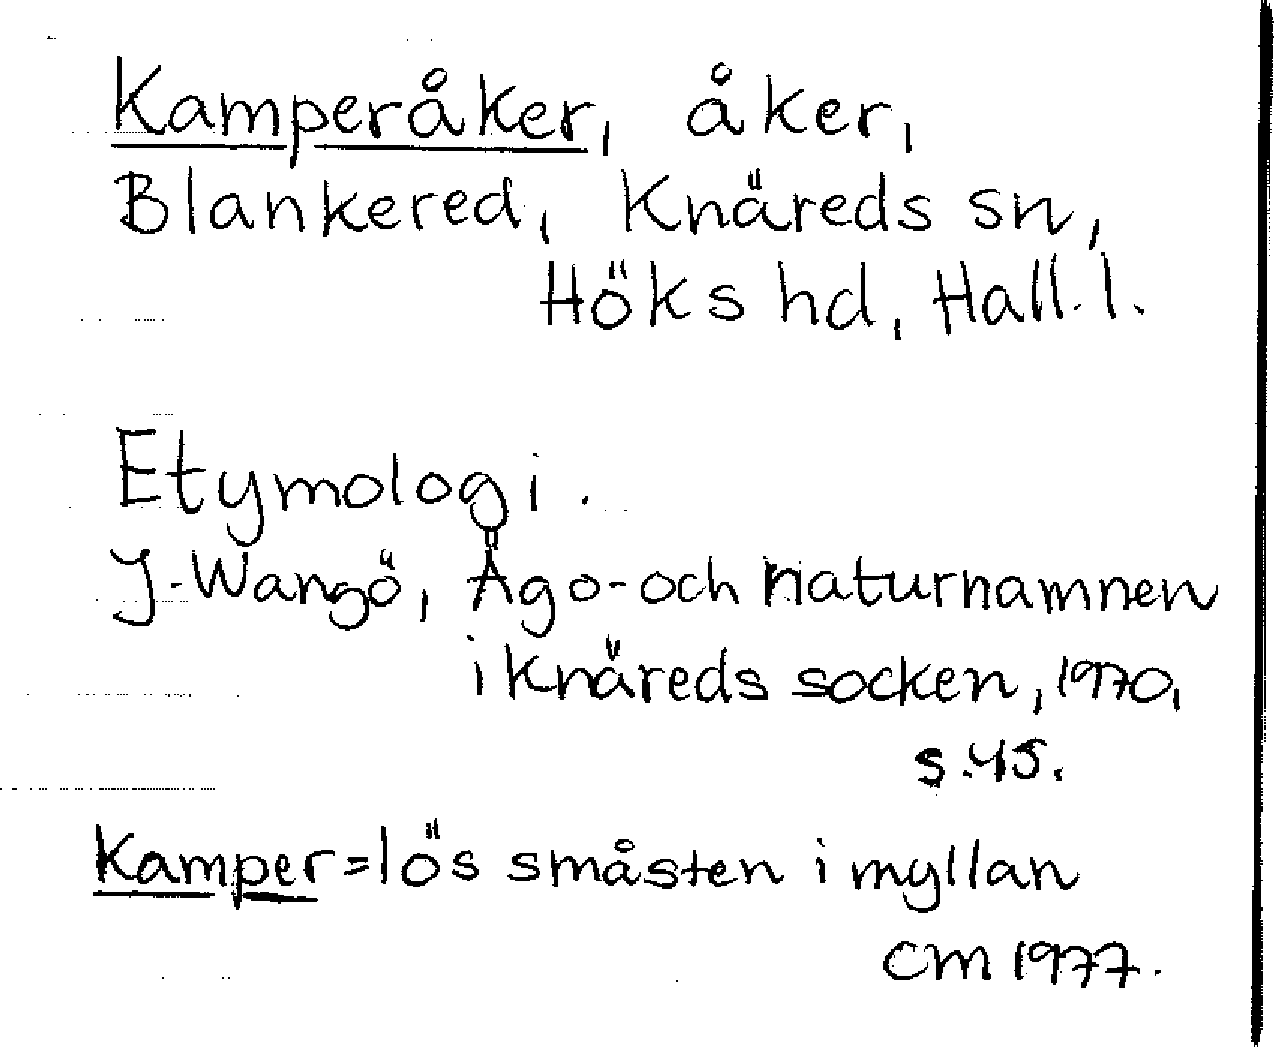 Kamperåker, åker,
Blankered, Knäreds sn,
Höks hd, Hall. l.
Etymologi.
J. Wangö, Ägo- och naturnamnen
i Knäreds socken, 1970,
s. 45.
Kamper = lös småsten i myllan
CM 1977.